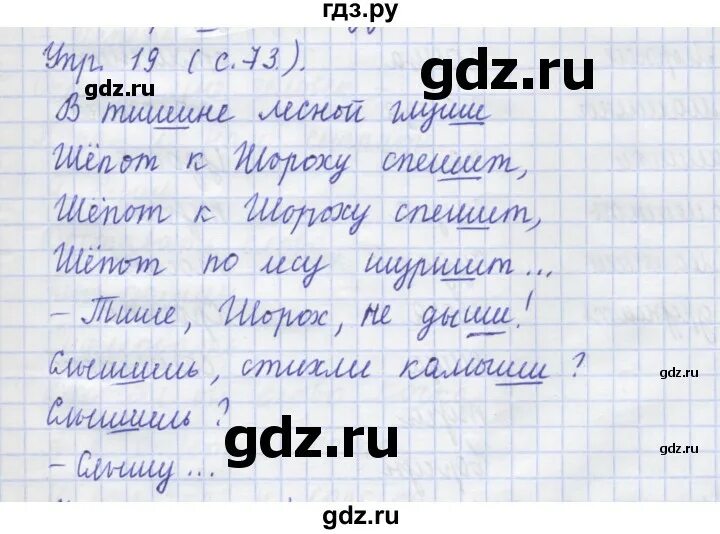 гдз.ру
Упр. 19 (с. 73).
gdz.ru
gdz.ru
В тишине лесной глуши
Шёпот к Шороху спешит,
Шёпот к Шороху спешит,
Шёпот по лесу шуршит...
- Тише, Шорох, не дыши!
Слышишь, стихли камыши?
gdz.ru
Слышишь?
gdz.ru
gdz.ru
- Слышу...
gdz.ru